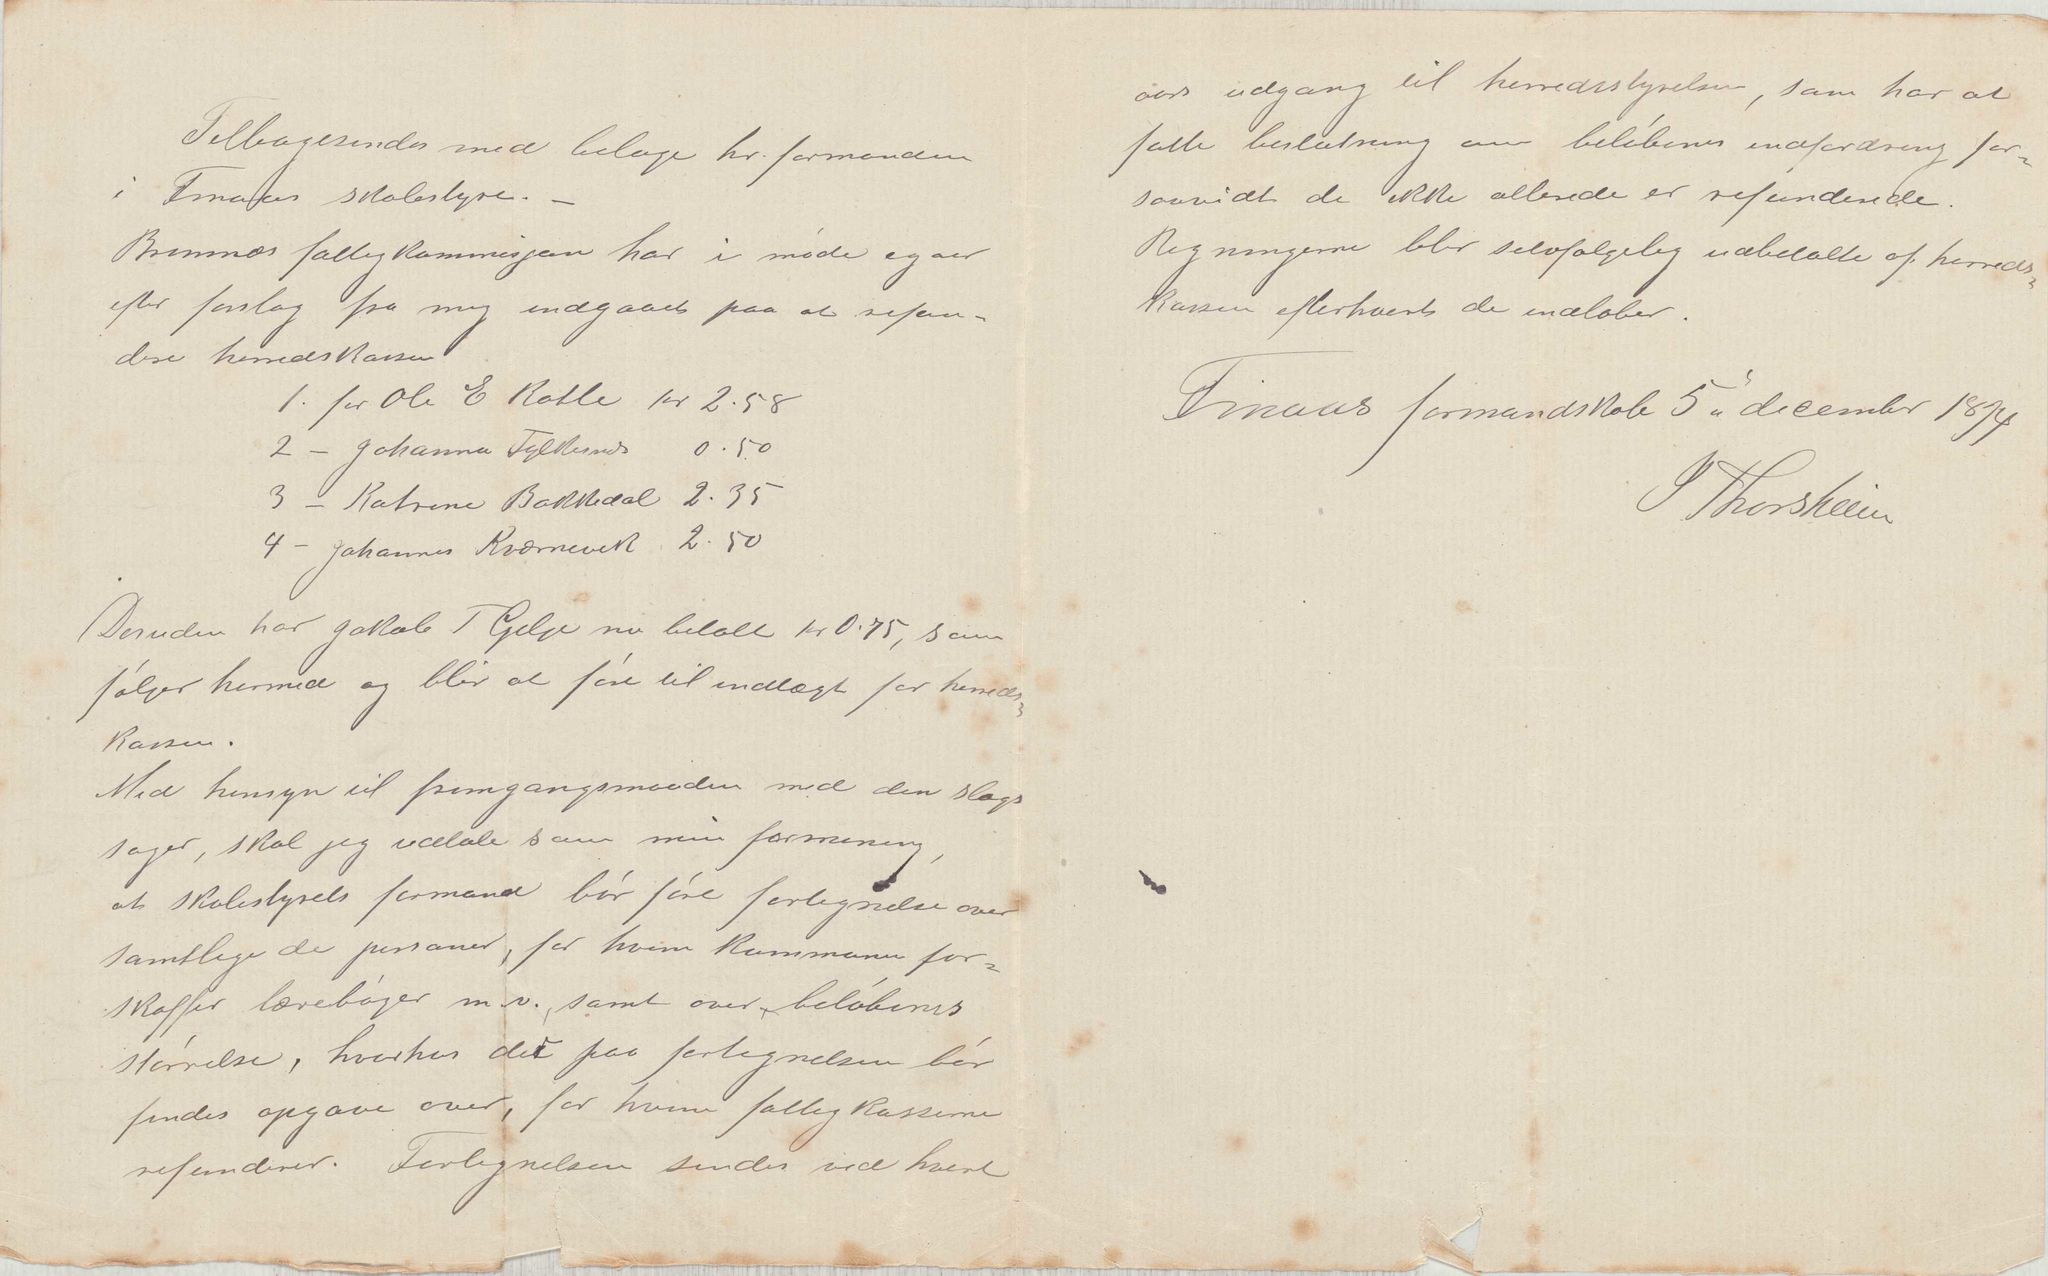 Tilbagesendes med bilage hr. formanden
i Finaas skolestyre. –
Bremnæs fattigkommisjon har i møde igaar
efter forslag fra mig indgaaet paa at refun-
dere herredskassen
1. for Ole E Katle kr 2.58
2 – Johanna Fylkesnæs 0.50
3 – Katrine Bakkedal 2.35
4 – Johannes Kværnevik 2.50
Desuden har Jakob T Gjelje nu betalt kr 0.75, som
følger hermed og blir at føre til indtægt for herreds-
kassen.
Med hensyn til fremgangsmaaden med den slags
sager, skal jeg udtale som min formening,
at skolestyrets formand bør føre fortegnelse over
samtlige de personer, for hvem kommunen for-
skaffer lærebøger m.v., samt over beløbenes
størrelse, hvorhos det paa fortegnelsen bør
findes opgave over, for hvem fattigkasserne
refunderer. Fortegnelsen sendes ved hvert
aars udgang til herredsstyrelsen, som har at
fatte beslutning om beløbenes indfordring for-
saavidt de ikke allerede er refunderede.
Regningerne blir selvfølgelig udbetalte af herreds-
kassen efterhvert de indløber.
Finaas formandskab 5 december 1894
J Thorsheim